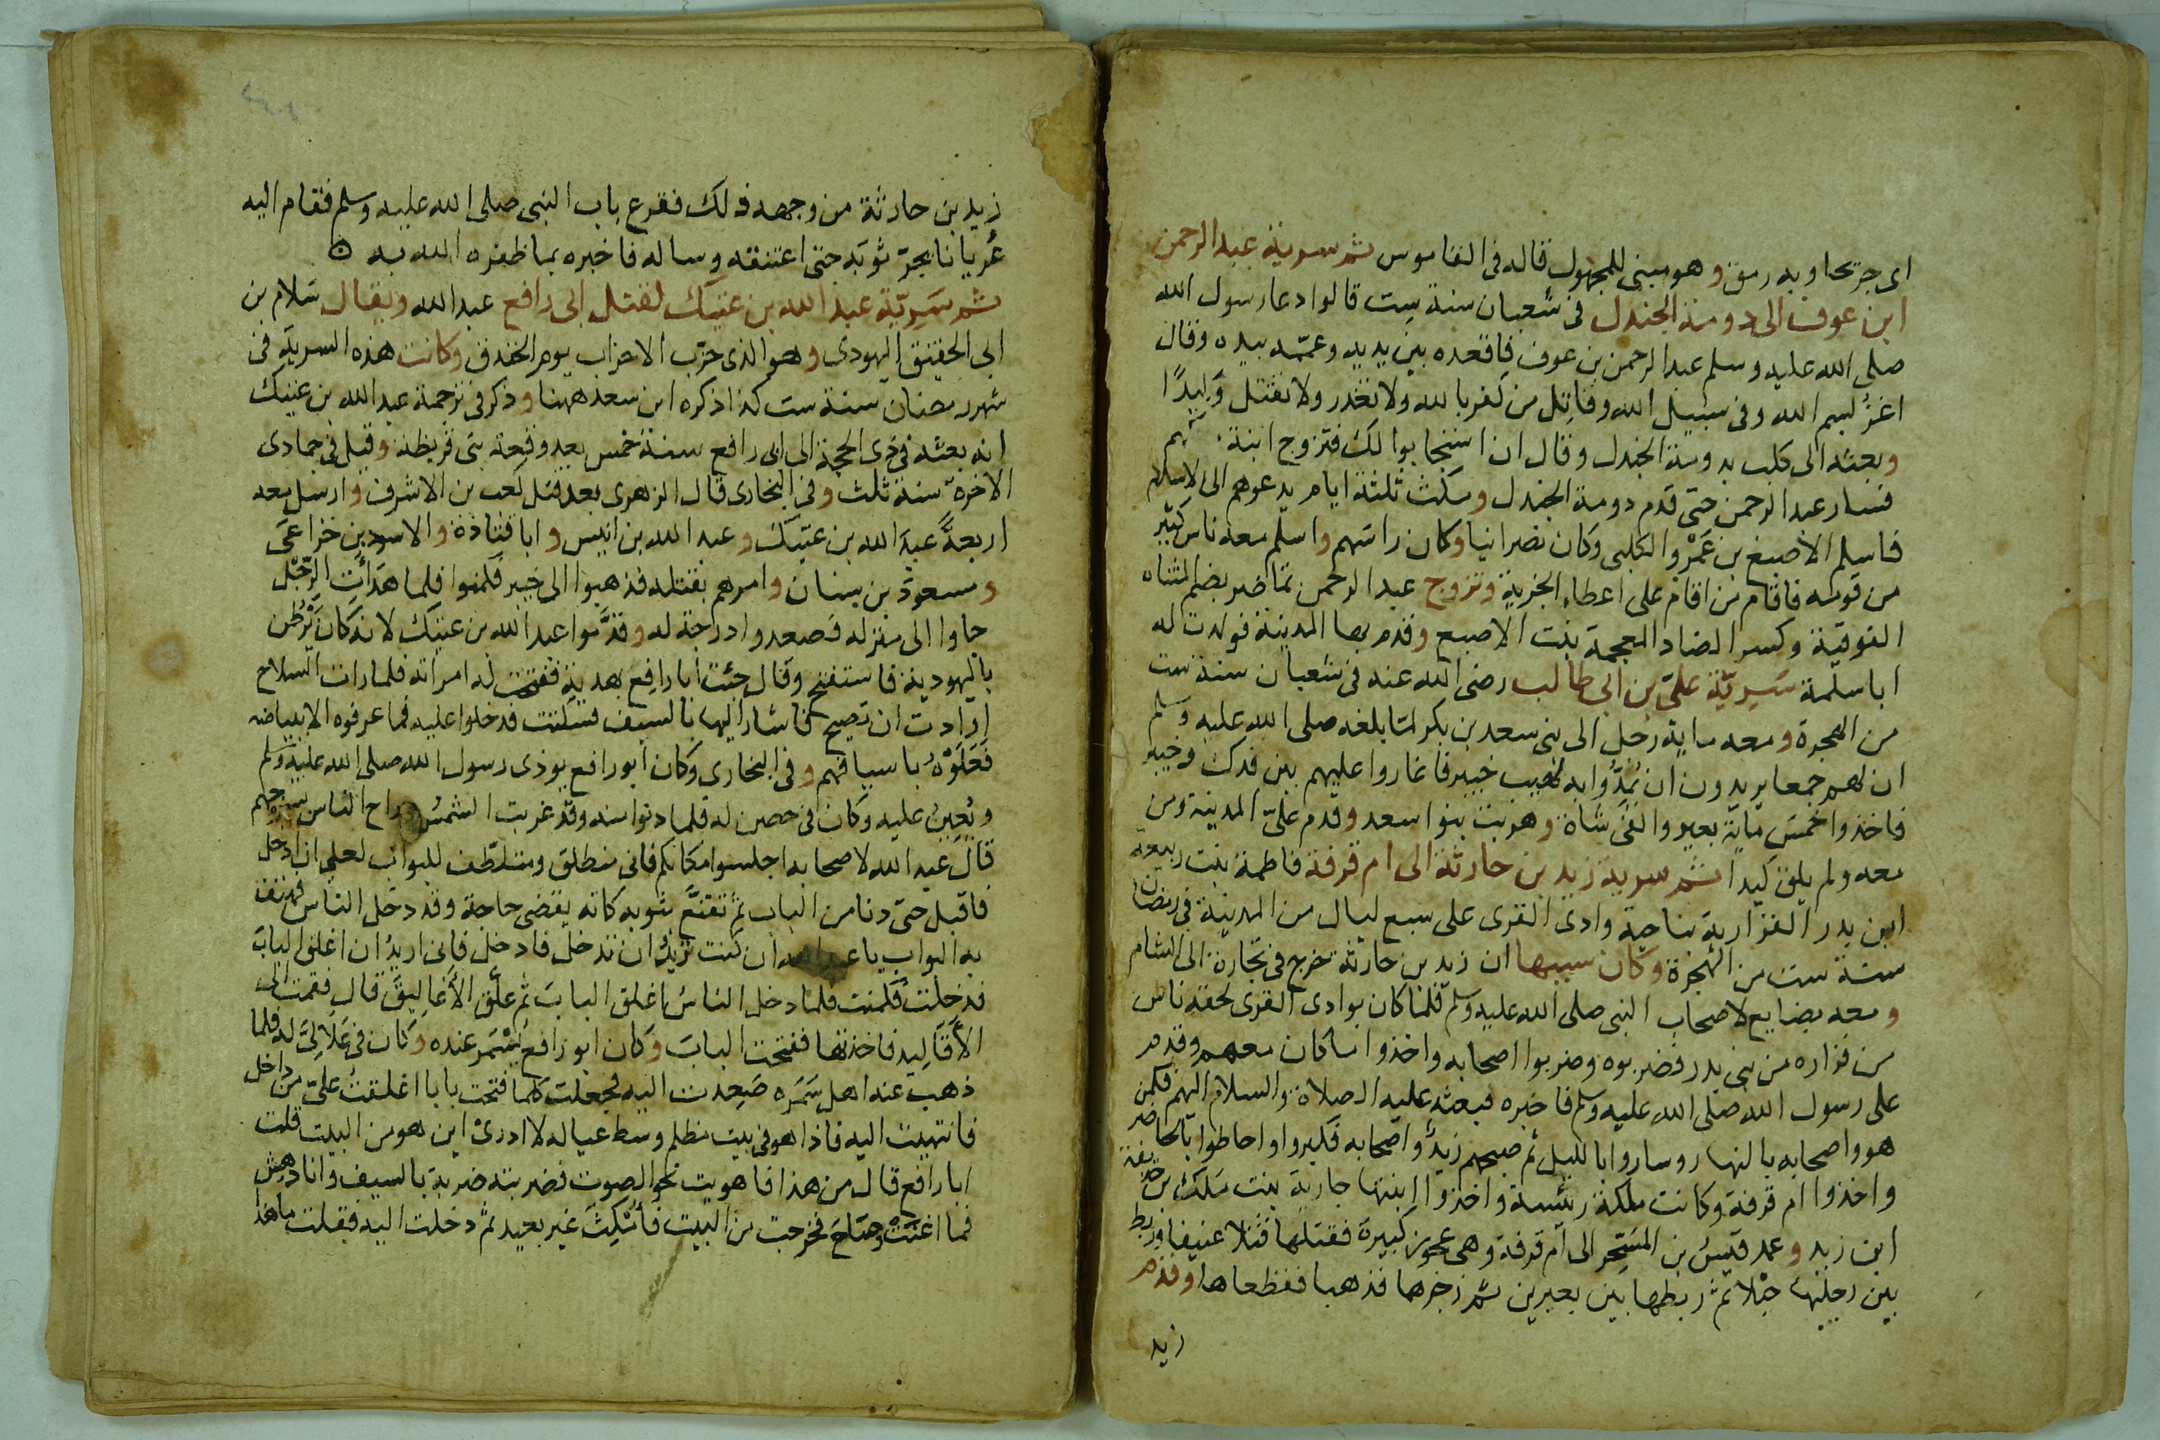 اى جرح وبه رمق وهو مبنى للمجهول قاله فى القاموس ثم سرية عبد الرحمن
ابن عوف الى دومة الجندل فى شعبان سنة ست قالوا دعا رسول الله
صلى الله عليه وسلم عبد الرحمن بن عوف فاقعده بين يديه وعممه بيده وقال
اغز بسم الله وفى سبيل الله وقاتل من كفر بالله ولا تغدر ولا تقتل وليدًا
وبعثه الى كلب بدومة الجندل وقال ان استجابوا لك فتزوج ابنة
فسار عبد الرحمن حتى قدم دومة الجندل ومكث ثلثة ايام يدعوهم الى الاسلام
فاسلم الاصبغ بن عَمْرو الكلبى وكان نصرانيا وكان راسهم واسلم معه ناس كثير
من قومه فاقام من اقام على اعطاء الجزية وتزوج عبد الرحمن تماضر بضم المثناه
الفوقية وكسر الضاد المعجمة بنت الاصبع وقدم بها المدينة فولدت له
ابا سلمة سَرِيّة علىّ بن ابى طالب رضى الله عنه فى شعبان سنة ست
من الهجرة ومعه ماية رجل الى بنى سعد بن بكر لما بلغه صلى الله عليه وسلم
ان لهم جمعا يريدون ان يُمِدُّوا به يهود خيبر فاغاروا عليهم بين فدك وخيبر
فاخذوا خمسَ مائة بعير والفَىْ شاة وهربت بنوا سعد وقدم علىّ المدينة ومن
معه ولم يلق كيدا ثم سرية زيد بن حارثة الى ام قرفة فاطمة بنت ربيعة
ابن بدر الفزارية بناحية وادى القرى على سبع ليال من المدينة فى رمضان
سنة ست من الهجرة وكان سببها ان زيد بن حارثة خرج فى تجارة الى الشام
ومعه بضايع لاصحاب النبى صلى الله عليه وسلم فلما كان بوادى القرى لحقه ناس
من فزاره من بنى بدر فضربوه وضربوا اصحابه واخذوا ما كان معهم وقدم
على رسول الله صلى الله عليه وسلم فاخبره فبعثه عليه الصلاة والسلام اليهم فكمن
هو واصحابه بالنهار وساروا بالليل ثم صبحهم زيدٌ واصحابه فكبروا واحاطوا بالحاضر
واخذوا ام قرفة وكانت ملكة رئيسة واخذوا ابنتها جارية بنت مَلك بن حذيفة
ابن زيد وعمد قيسُ بن المسَحّر الى ام قرفة وهى عجوز كبيرة فقتلها قتلا عنيفا وربط
بين رجليها حبْلا ثم ربطها بين بعيرين ثم زجرها فذهبا فقطعاها وقدم
زيد
زيد بن حارثة من وجهه ذلك فقرع باب النبى صلى الله عليه وسلم فقام اليه
عُريانا يجرّ ثوبَه حتى اعتنقه وساله فاخبره بما ظفره الله به ۞
ثم سَرِيّة عبد الله بن عتيك لقتل ابى رافع عبد الله ويقال سَلام بن
ابى الحقيق اليهودى وهو الذى حزّب الاحزاب يوم الخندق وكانت هذه السرية فى
شهر رمضان سنة ست كذا ذكره ابن سعد ههنا وذكر فى ترجمة عبد الله بن عتيك
انه بعثه فى ذى الحجة الى ابى رافع سنة خمس بعد وقعة بنى قريظة وقيل فى جمادى
الاخرة سنة ثلث وفى البخارى قال الزهرى بعد قتل كعب بن الاشرف وارسل معه
اربعةً عبدَ الله بن عتيك وعبد الله بن انيس وابا قتادة والاسود بن خزاعى
ومسعودَ بن سنان وامرهم بقتله فذهبوا الى خيبر فكمنوا فلما هَدَأَتِ الرِّجْل
جاوا الى منزله فصعدوا درجة له وقدَّموا عبد الله بن عتيك لانه كان يَرْطُن
باليهودية فاستفتح وقال جئت ابا رافع بهدية ففتحت له امراته فلما رات السلاح
ارادت ان تصيح فاشار اليها بالسيف فسكنت فدخلوا عليه فما عرفوه الا ببياضه
فَعَلَوْهُ باسيافهم وفى البخارى وكان ابو رافع يوذى رسول الله صلى الله عليه وسلم
ويُعِينُ عليه وكان فى حصن له فلما دنوا منه وقد غربت الشمسُ وراح الناس بسرحهم
قال عبد الله لاصحابه اجلسوا مكانكم فانى منطلق ومتلطّف للبواب لعلى ان ادخل
فاقبل حتى دنا من الباب ثم تقنّع بثوبه كانه يقضى حاجة وقد دخل الناس فهتف
به البواب يا عبد الله ان كنت تريد ان تدخل فادخل فانى اريدُ ان اغلق البابَ
فدخلتُ فكمنت فلما دخل الناسُ اغلق البابَ ثم علّق الأَغاليقَ قال فقمت الى
الأَقاليد فاخذتها ففتحت البابَ وكان ابو رافع يُسْمَر عنده وكان فى عَلالِىَّ له فلما
ذهب عنه اهل سَمَره صَعِدت اليه فجعلت كلما فتحت بابا اغلقتُ علىّ من داخل
فانتهيت اليه فاذا هو فى بيت مظلم وسط عياله لا ادرى اين هو من البيت قلت
ابا رافع قال من هذا فاهويت نحو الصوت فضربته ضربة بالسيف وانا دهش
فما اغنت وصَاحَ فخرجت من البيت فأمْكثَ غير بعيد ثم دخلت اليه فقلت ما هذا